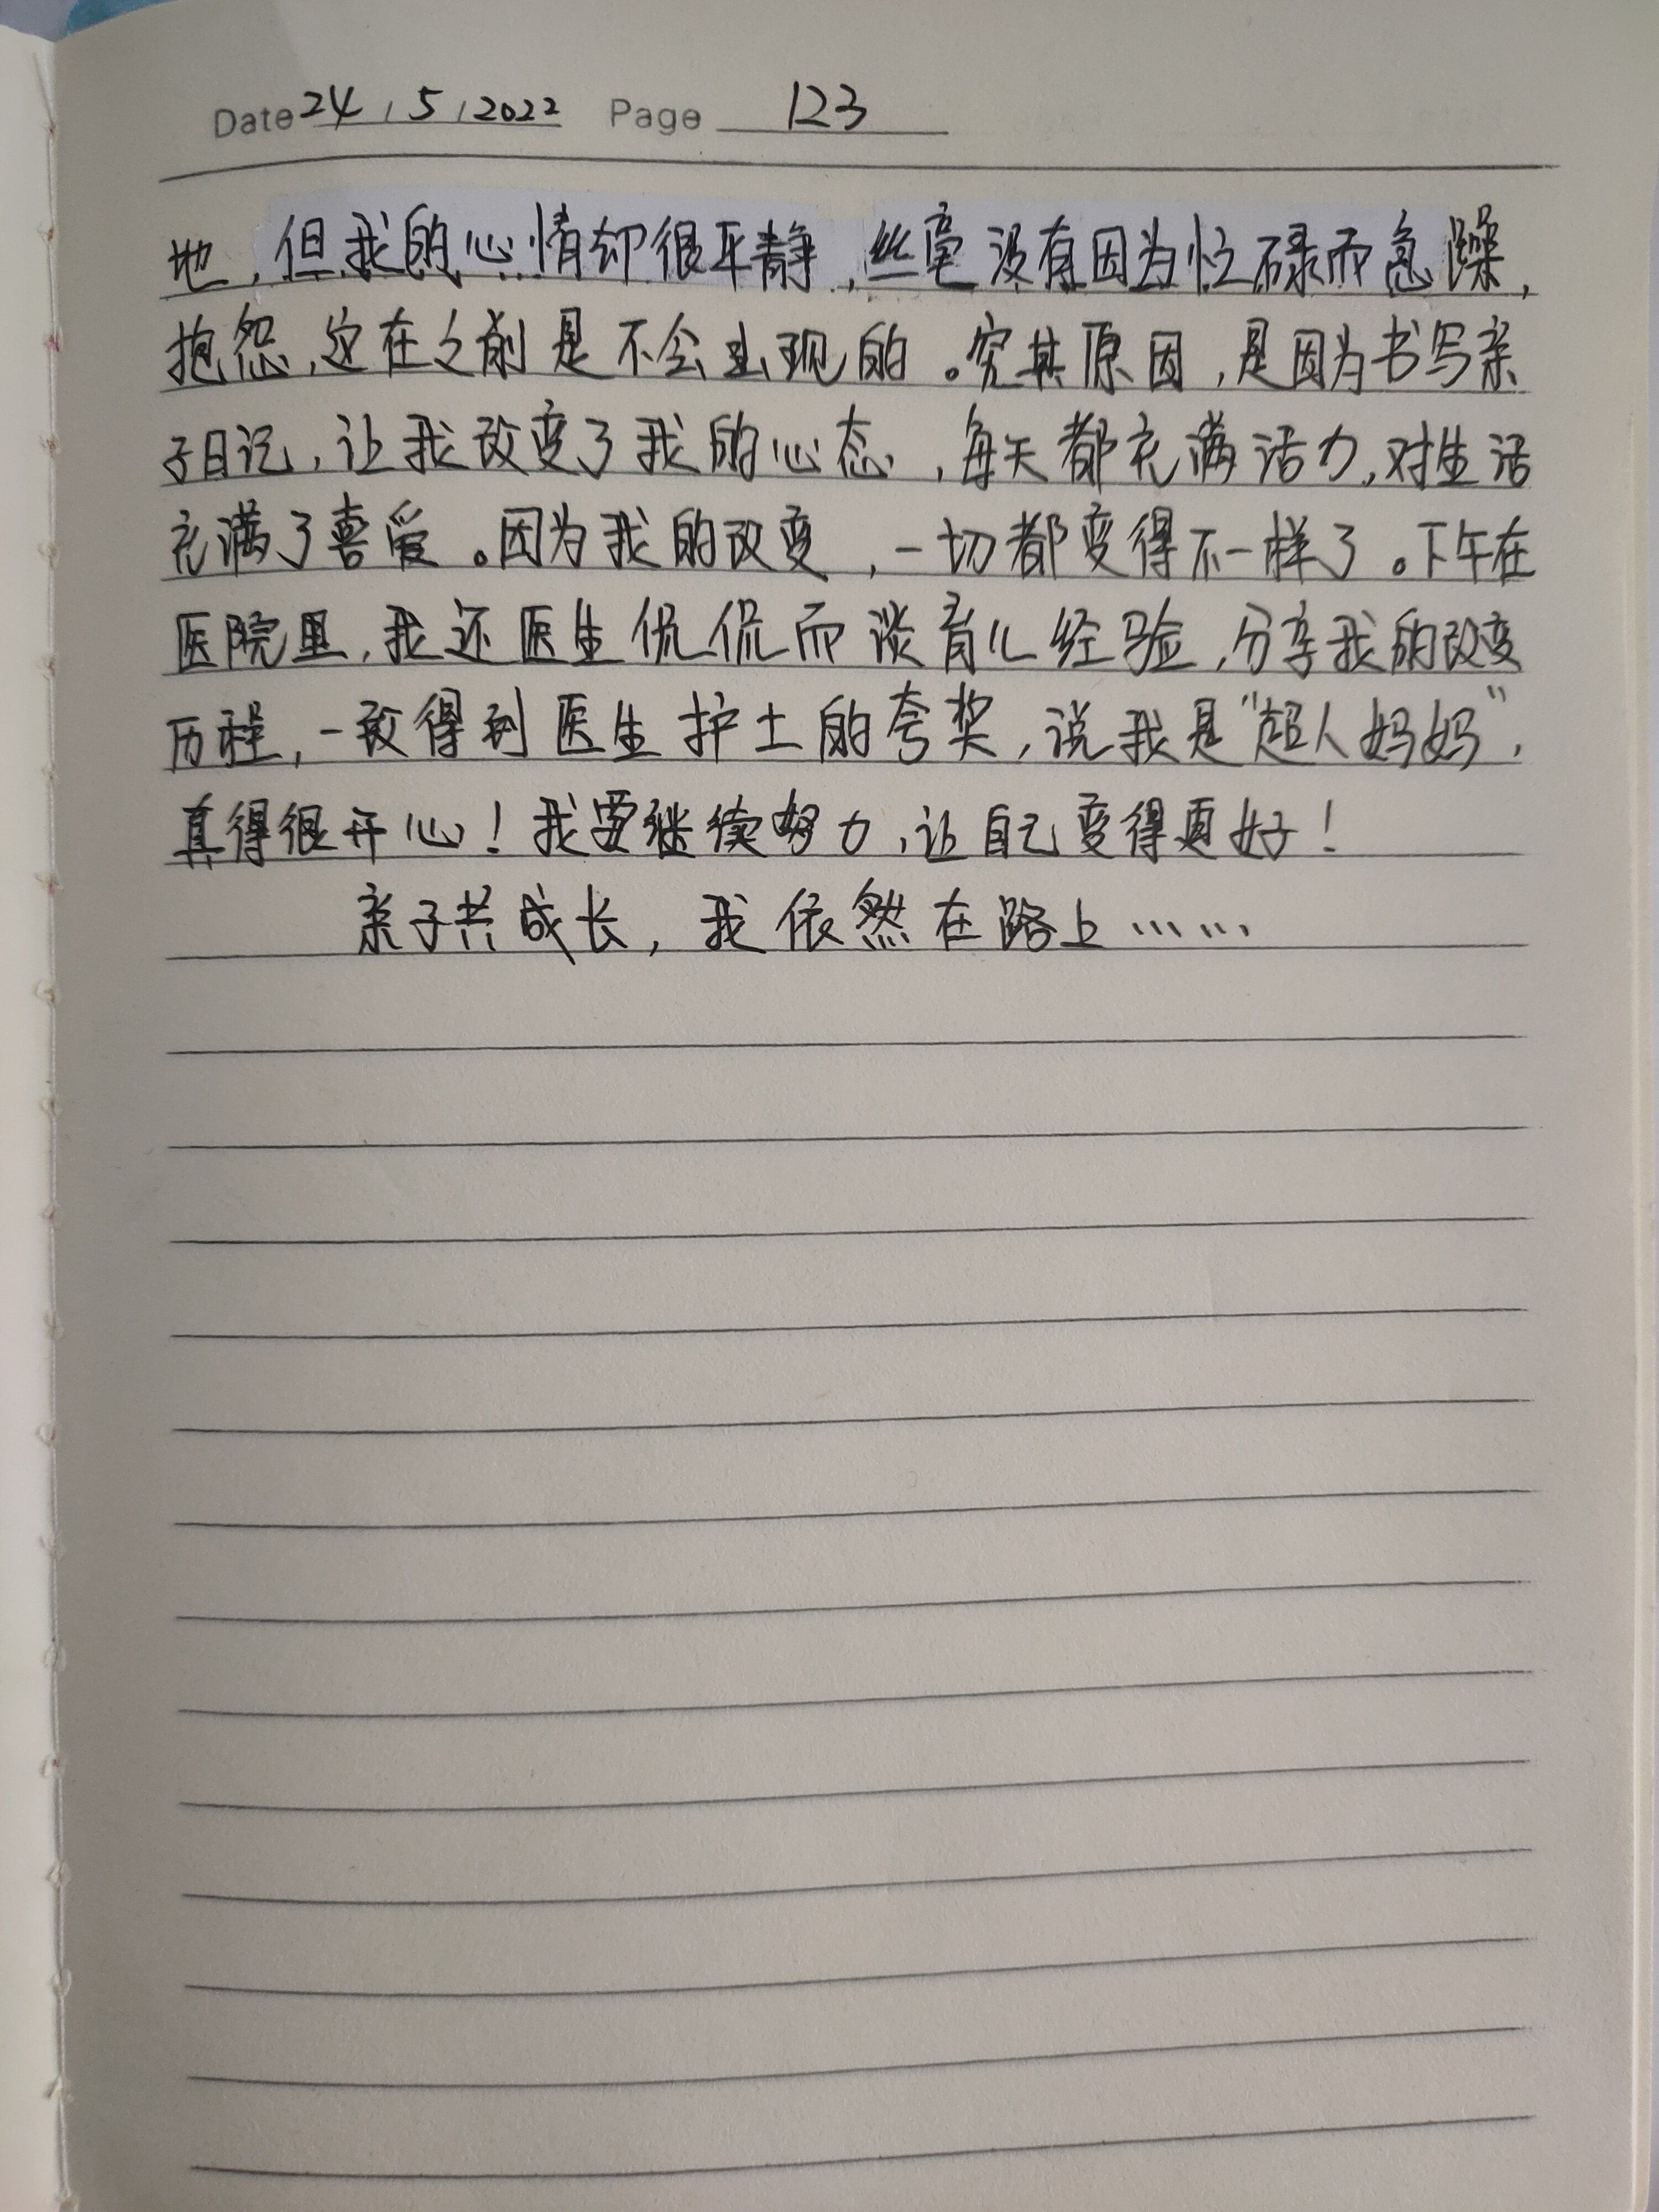 Date 24 / 5 / 2022 Page 123
地，但我的心情却很平静，丝毫没有因为忙碌而急躁，
抱怨，这在之前是不会出现的。究其原因，是因为书写亲
子日记，让我改变了我的心态，每天都充满活力，对生活
充满了喜爱。因为我的改变，一切都变得不一样了。下午在
医院里，我还医生侃侃而谈育儿经验，分享我的改变
历程，一致得到医生护士的夸奖，说我是“超人妈妈”，
真得很开心！我要继续努力，让自己变得更好！
亲子共成长，我依然在路上……